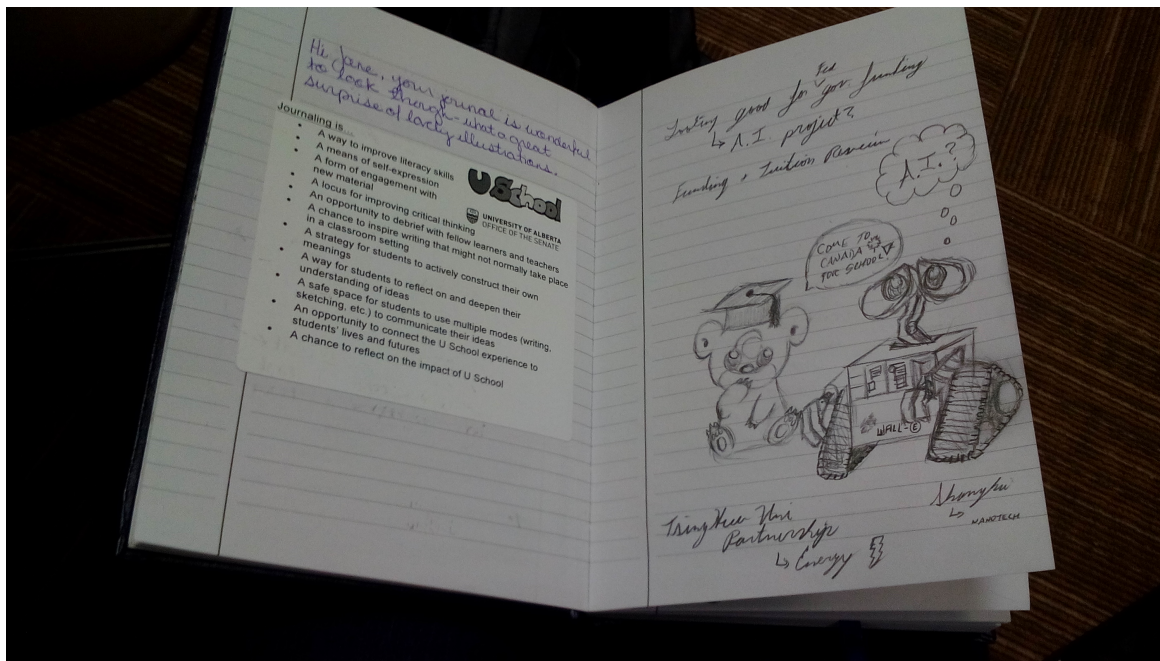 Hi Jane, your journal is wonderful
to look through - what a great
surprise of lovely illustrations.
Journaling is...
• A way to improve literacy skills
• A means of self-expression
• A form of engagement with
new material
• A locus for improving critical thinking
• An opportunity to debrief with fellow learners and teachers
• A chance to inspire writing that might not normally take place
in a classroom setting
• A strategy for students to actively construct their own
meanings
• A way for students to reflect on and deepen their
understanding of ideas
• A safe space for students to use multiple modes (writing,
sketching, etc.) to communicate their ideas
• An opportunity to connect the U School experience to
students' lives and futures
• A chance to reflect on the impact of U School
U School
UNIVERSITY OF ALBERTA
OFFICE OF THE SENATE
Looking good for Fed gov funding
↳ A.I. project?
Funding + Tuition
A.I.?
COME TO
CANADA
FOR SCHOOL!
WALL-E
TsingHua Uni
Partnership
↳ Energy
↳ NANOTECH